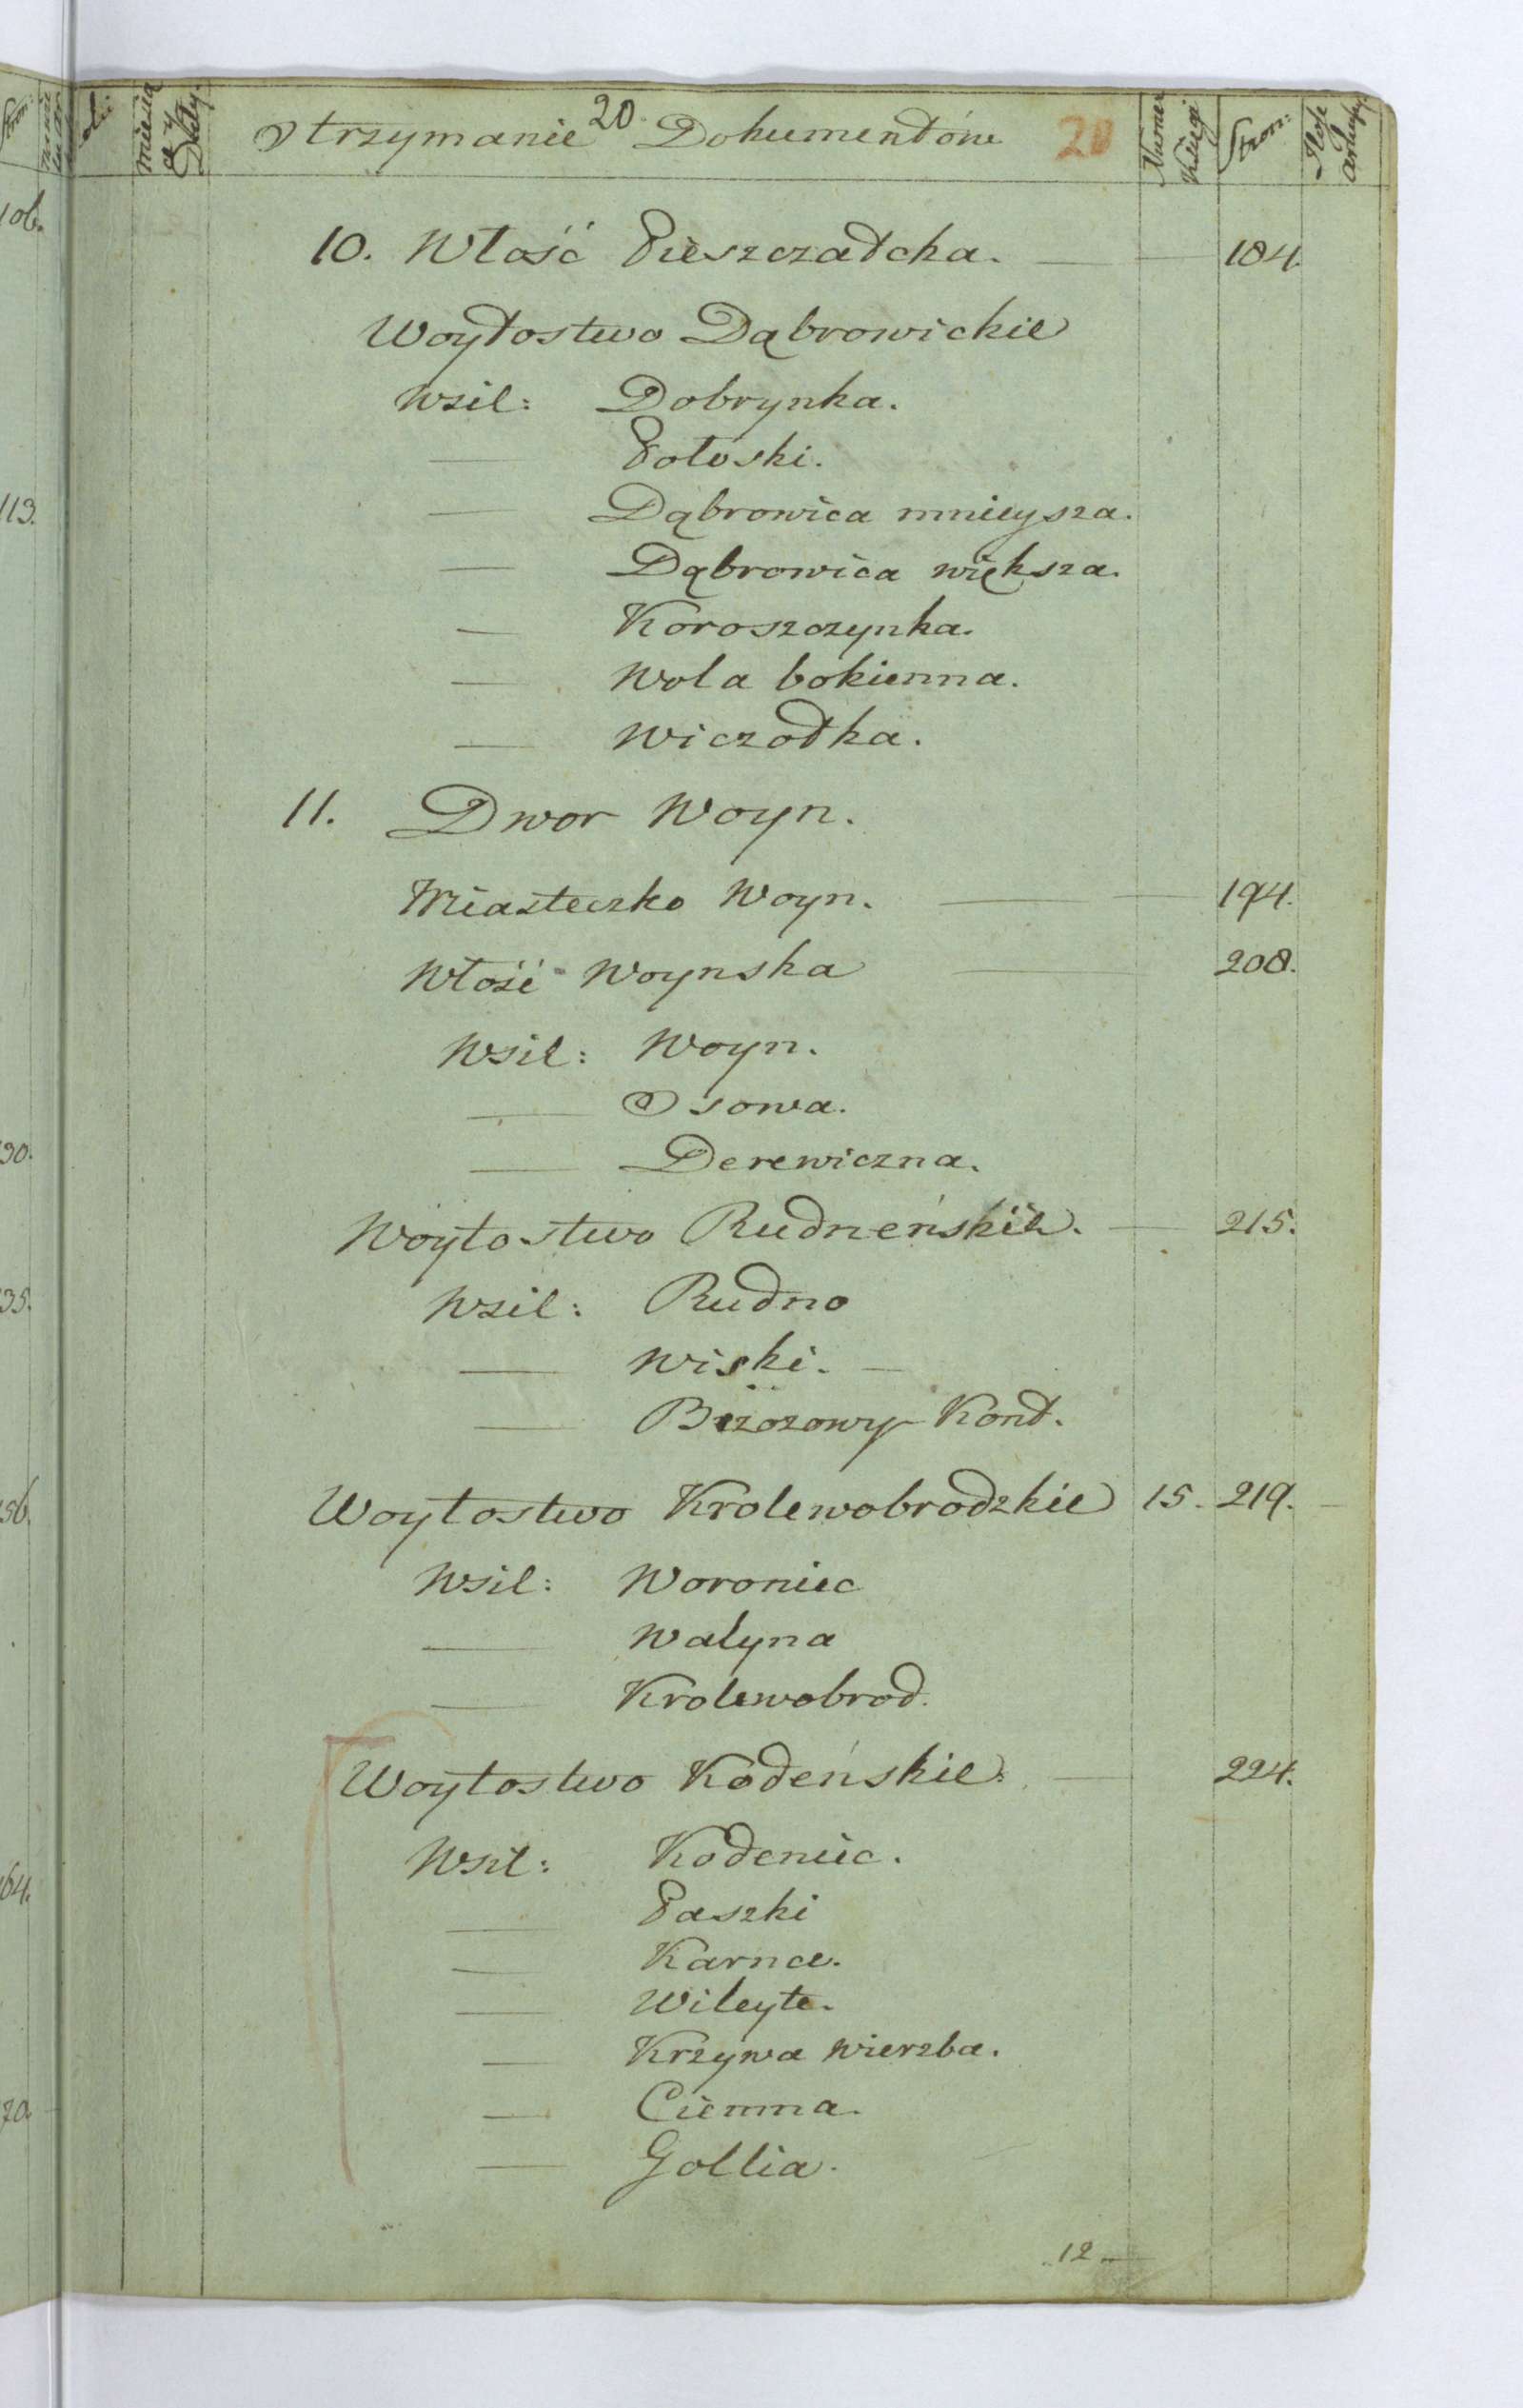 miesiąc y Daty. Otrzymanie 20 Dokumentów 20 Numer Księgi Stron:
10. Włość Pieszczatcka. 184.
Woytostwo Dąbrowickie
Wsie: Dobrynka.
Połoski.
Dąbrowica mnieysza.
Dąbrowica większa.
Koroszczynka.
Wola bokienna.
Wiczotka.
11. Dwor Woyn.
Miasteczko Woyn. 194.
Włość Woynska 208.
Wsie: Woyn.
Osowa.
Derewiczna.
Woytostwo Rudneńskie. 215.
Wsie: Rudno
Wiski.
Brzozowy Kont.
Woytostwo Krolewobrodzkie 15. 219.
Wsie: Woroniec
Walyna
Krolewobrod.
Woytostwo Kodeńskie. 224.
Wsie: Kodeniec.
Paszki
Karnce.
Wileyte.
Krzywa wierzba.
Ciemna.
Gollia.
12
106.
113.
30.
35.
56.
64.
70.